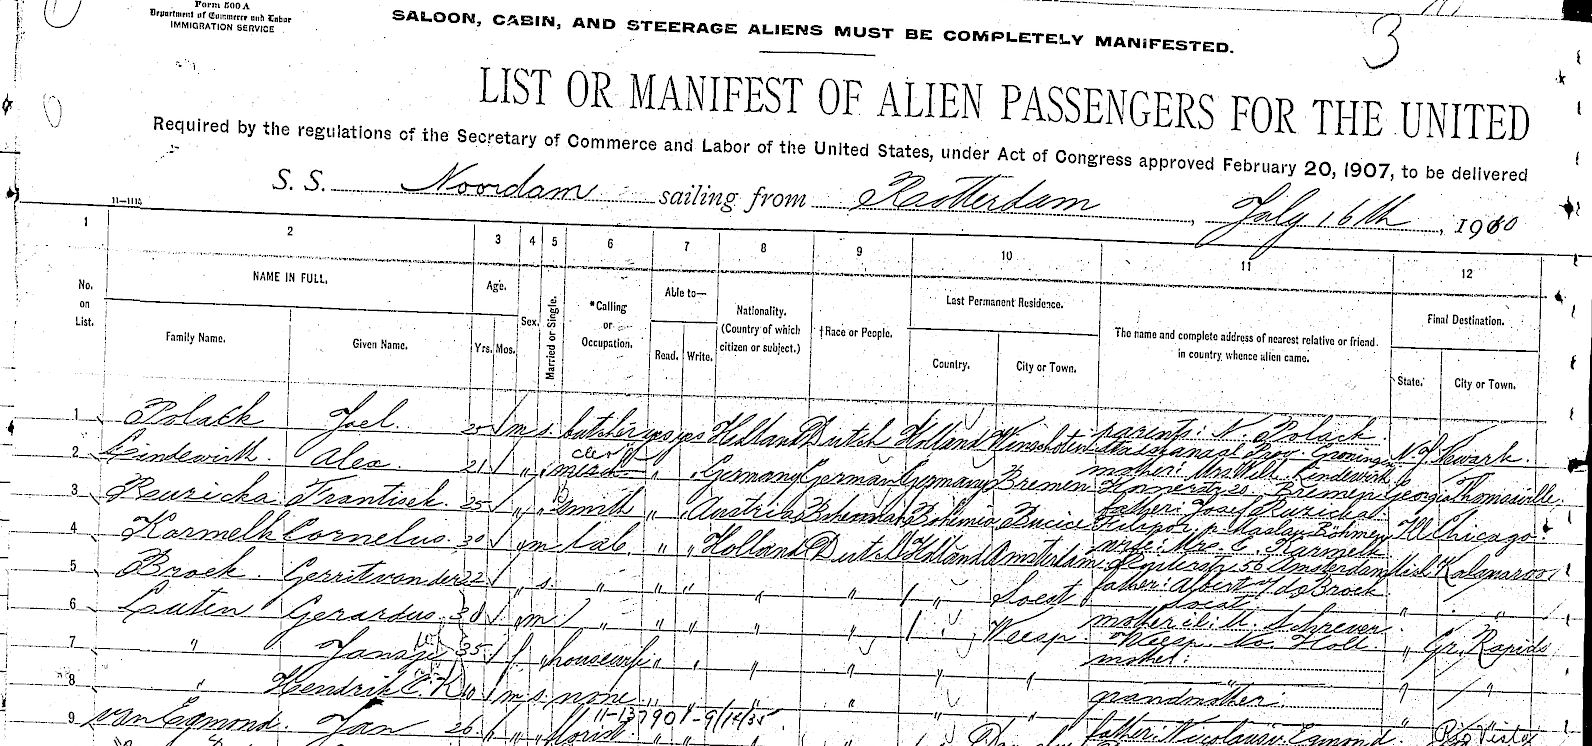 Form 500 A
Department of Commerce and Labor
IMMIGRATION SERVICE
SALOON, CABIN, AND STEERAGE ALIENS MUST BE COMPLETELY MANIFESTED.
3
LIST OR MANIFEST OF ALIEN PASSENGERS FOR THE UNITED
Required by the regulations of the Secretary of Commerce and Labor of the United States, under Act of Congress approved February 20, 1907, to be delivered
S. S. Noordam sailing from Rotterdam, July 16th, 1910
11—1115
1 2 3 4 5 6 7 8 9 10 11 12
No. on List.
NAME IN FULL.
Family Name. Given Name.
Age.
Yrs. Mos.
Sex.
Married or Single.
*Calling or Occupation.
Able to—
Read. Write.
Nationality. (Country of which citizen or subject.)
†Race or People.
Last Permanent Residence.
Country. City or Town.
The name and complete address of nearest relative or friend in country whence alien came.
Final Destination.
State. City or Town.
1 Polack Joel 20 m s. butcher yes yes Holland Dutch Holland Winschoten parents: N. Polack N.J. Newark.
2 Lindewirth Alex. 21 " " Germany German Germany Bremen mother: Bremen Georgia Thomasville
3 Ruzicka Frantisek 25 " smith " " Austria Bohemian Bohemia father: Josef Ruzicka Ill Chicago
4 Karmelk Cornelus 30 " m lab. " " Holland Dutch Holland Amsterdam wife: Mrs. C. Karmelk 56 Amsterdam
5 Broek. Gerrit van der 22 " s " " " " " " Soest father: Albert v/d Broek Soest " "
6 Luten Gerardus 38 " m " " " " " Weesp. M. Schrever Weesp. No. Holl. " Gr. Rapids
7 " 35 f " housewife " " " " " mother: "
8 " Hendrik 10 m s. none " " " " grandmother: " "
9 van Egmond. Jan 26 " " florist 11-137901-9/14/35. father: Nicolaus v. Egmond " Rio Vista